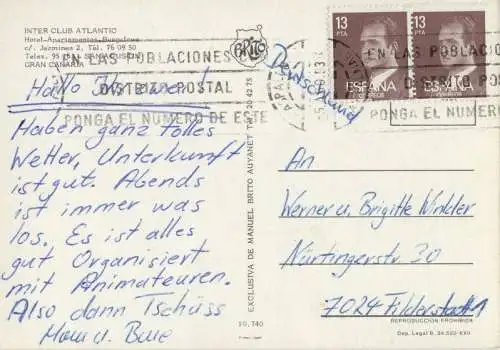 INTER CLUB ATLANTIC
Hotel-Apartamentos-Bungalows
c/. Jazmines 2, Tél. 76 09 50
Telex. 95 (SAN AGUSTIN)
GRAN CANARIA
BRITO
EN LAS POBLACIONES
DISTRITO POSTAL
PONGA EL NUMERO DE ESTE
Hallo
Haben ganz tolles
Wetter, Unterkunft
ist gut. Abends
ist immer was
los. Es ist alles
gut Organisiert
mit Animateuren.
Also dann Tschüss
EXCLUSIVA DE MANUEL BRITO AUYANET Tel. 20 42 75
10.740
Deutschland
13
PTA
ESPAÑA
13
PTA
ESPAÑA
EN LAS POBLACIO
DISTRITO POS
PONGA EL NUMERO
An
Werner u. Brigitte Winkler
Nürtingerstr. 30
7024 Filderstadt 1
REPRODUCCION PROHIBIDA